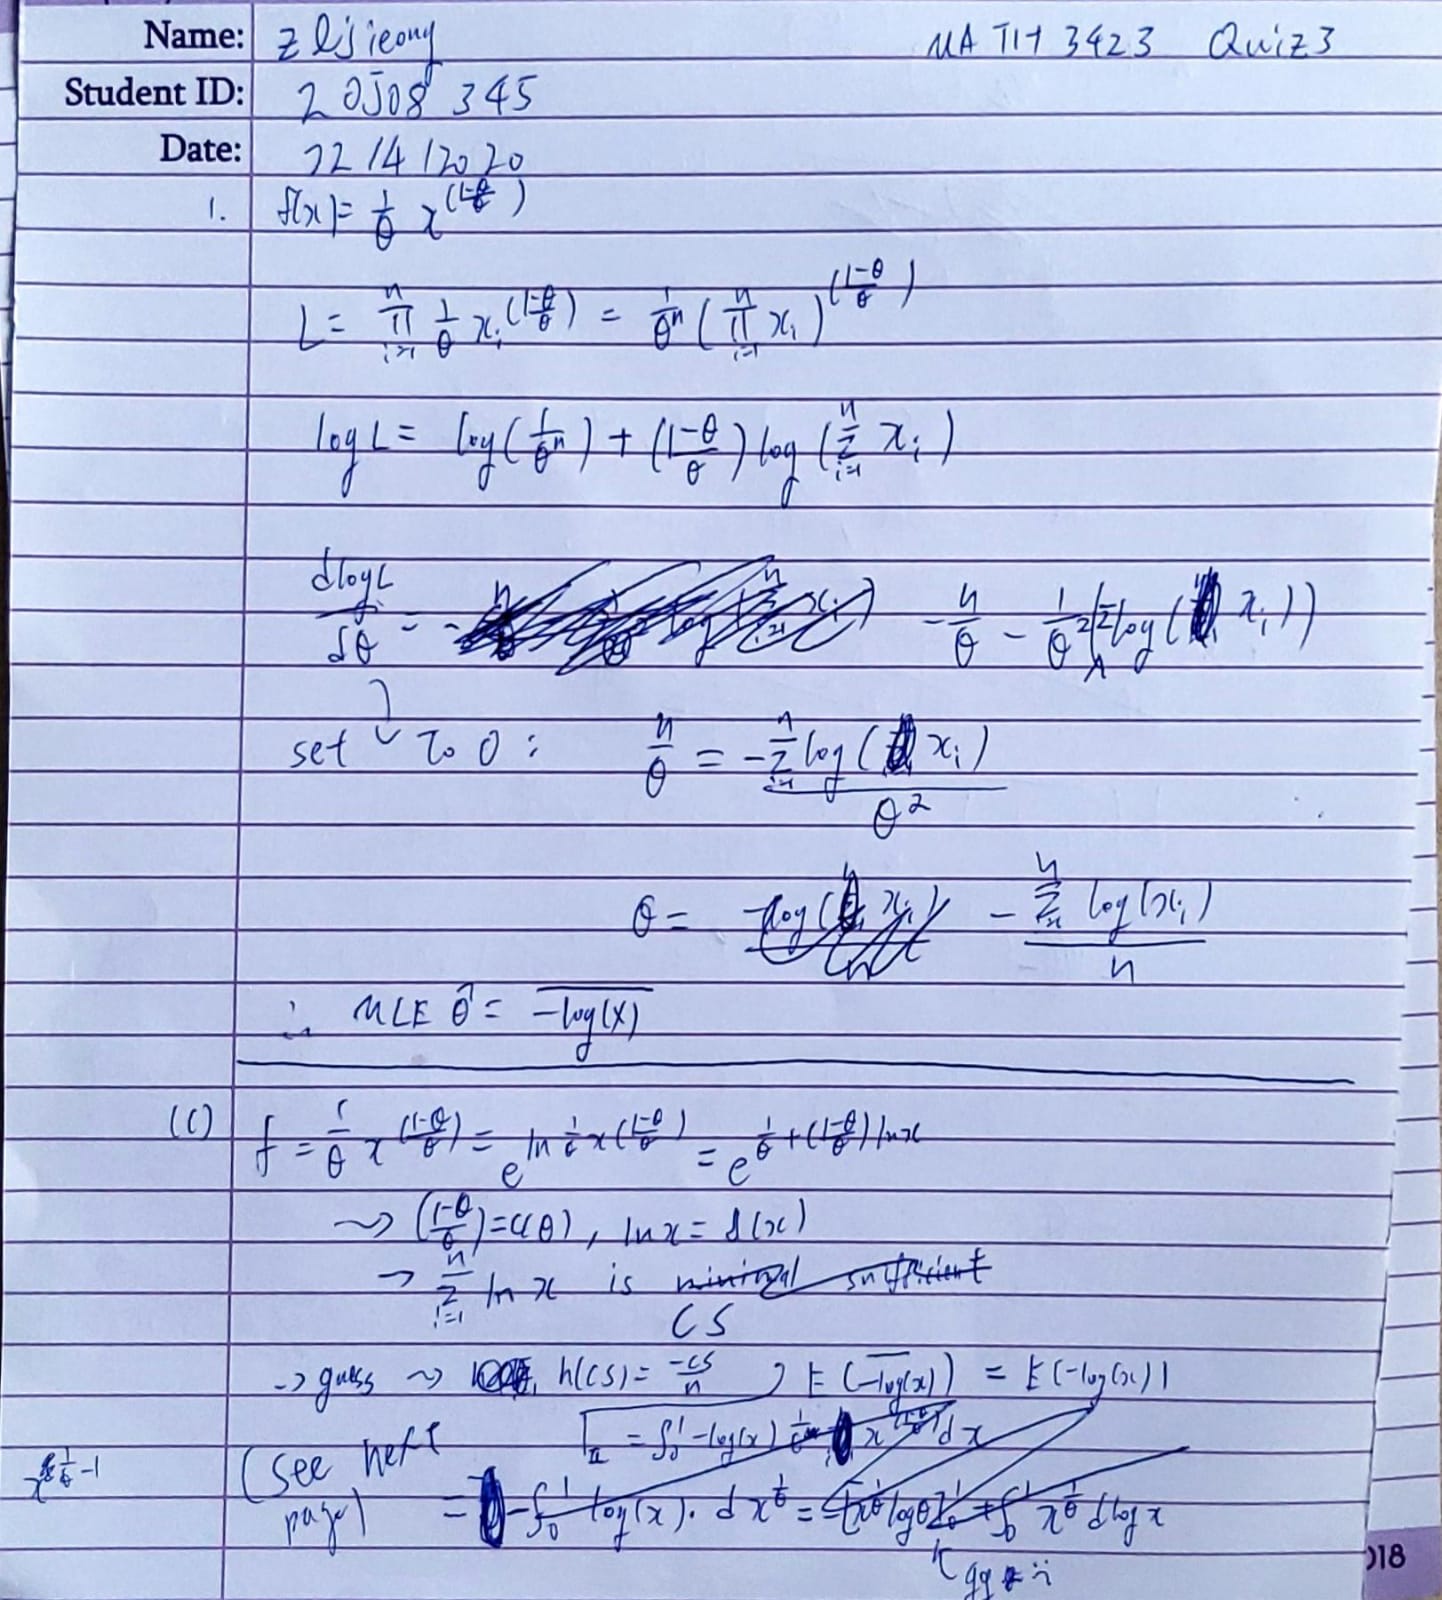 Name: MATH 3423 Quiz3
Student ID: 20508345
Date: 22/4/2020
1. f(x) = 1/θ x^((1-θ)/θ)
L = ∏_{i=1}^{n} 1/θ x_i^((1-θ)/θ) = 1/θ^n (∏_{i=1}^{n} x_i)^((1-θ)/θ)
log L = log(1/θ^n) + ((1-θ)/θ) log(Σ_{i=1}^{n} x_i)
dlogL/dθ = - n/θ - 1/θ² (Σ log(x_i))
set to 0: n/θ = -Σ_{i=1}^{n} log(x_i) / θ²
θ = - Σ_{i=1}^{n} log(x_i) / n
∴ MLE θ̂ = \overline{-log(x)}
(c) f = 1/θ x^((1-θ)/θ) = e^(ln 1/θ x^((1-θ)/θ)) = e^(1/θ + ((1-θ)/θ) ln x)
→ ((1-θ)/θ) = c(θ), ln x = d(x)
→ Σ_{i=1}^{n} ln x is minimal sufficient
CS
→ guess → h(CS) = -CS/n , E(\overline{-log(x)}) = E(-log(x))
= ∫_0^1 -log(x) 1/θ x^((1-θ)/θ) dx
x^(1/θ - 1) (see next
page) = -∫_0^1 log(x) · d x^(1/θ) = -[x^(1/θ) logθ]_0^1 + ∫_0^1 x^(1/θ) d log x
gg
018